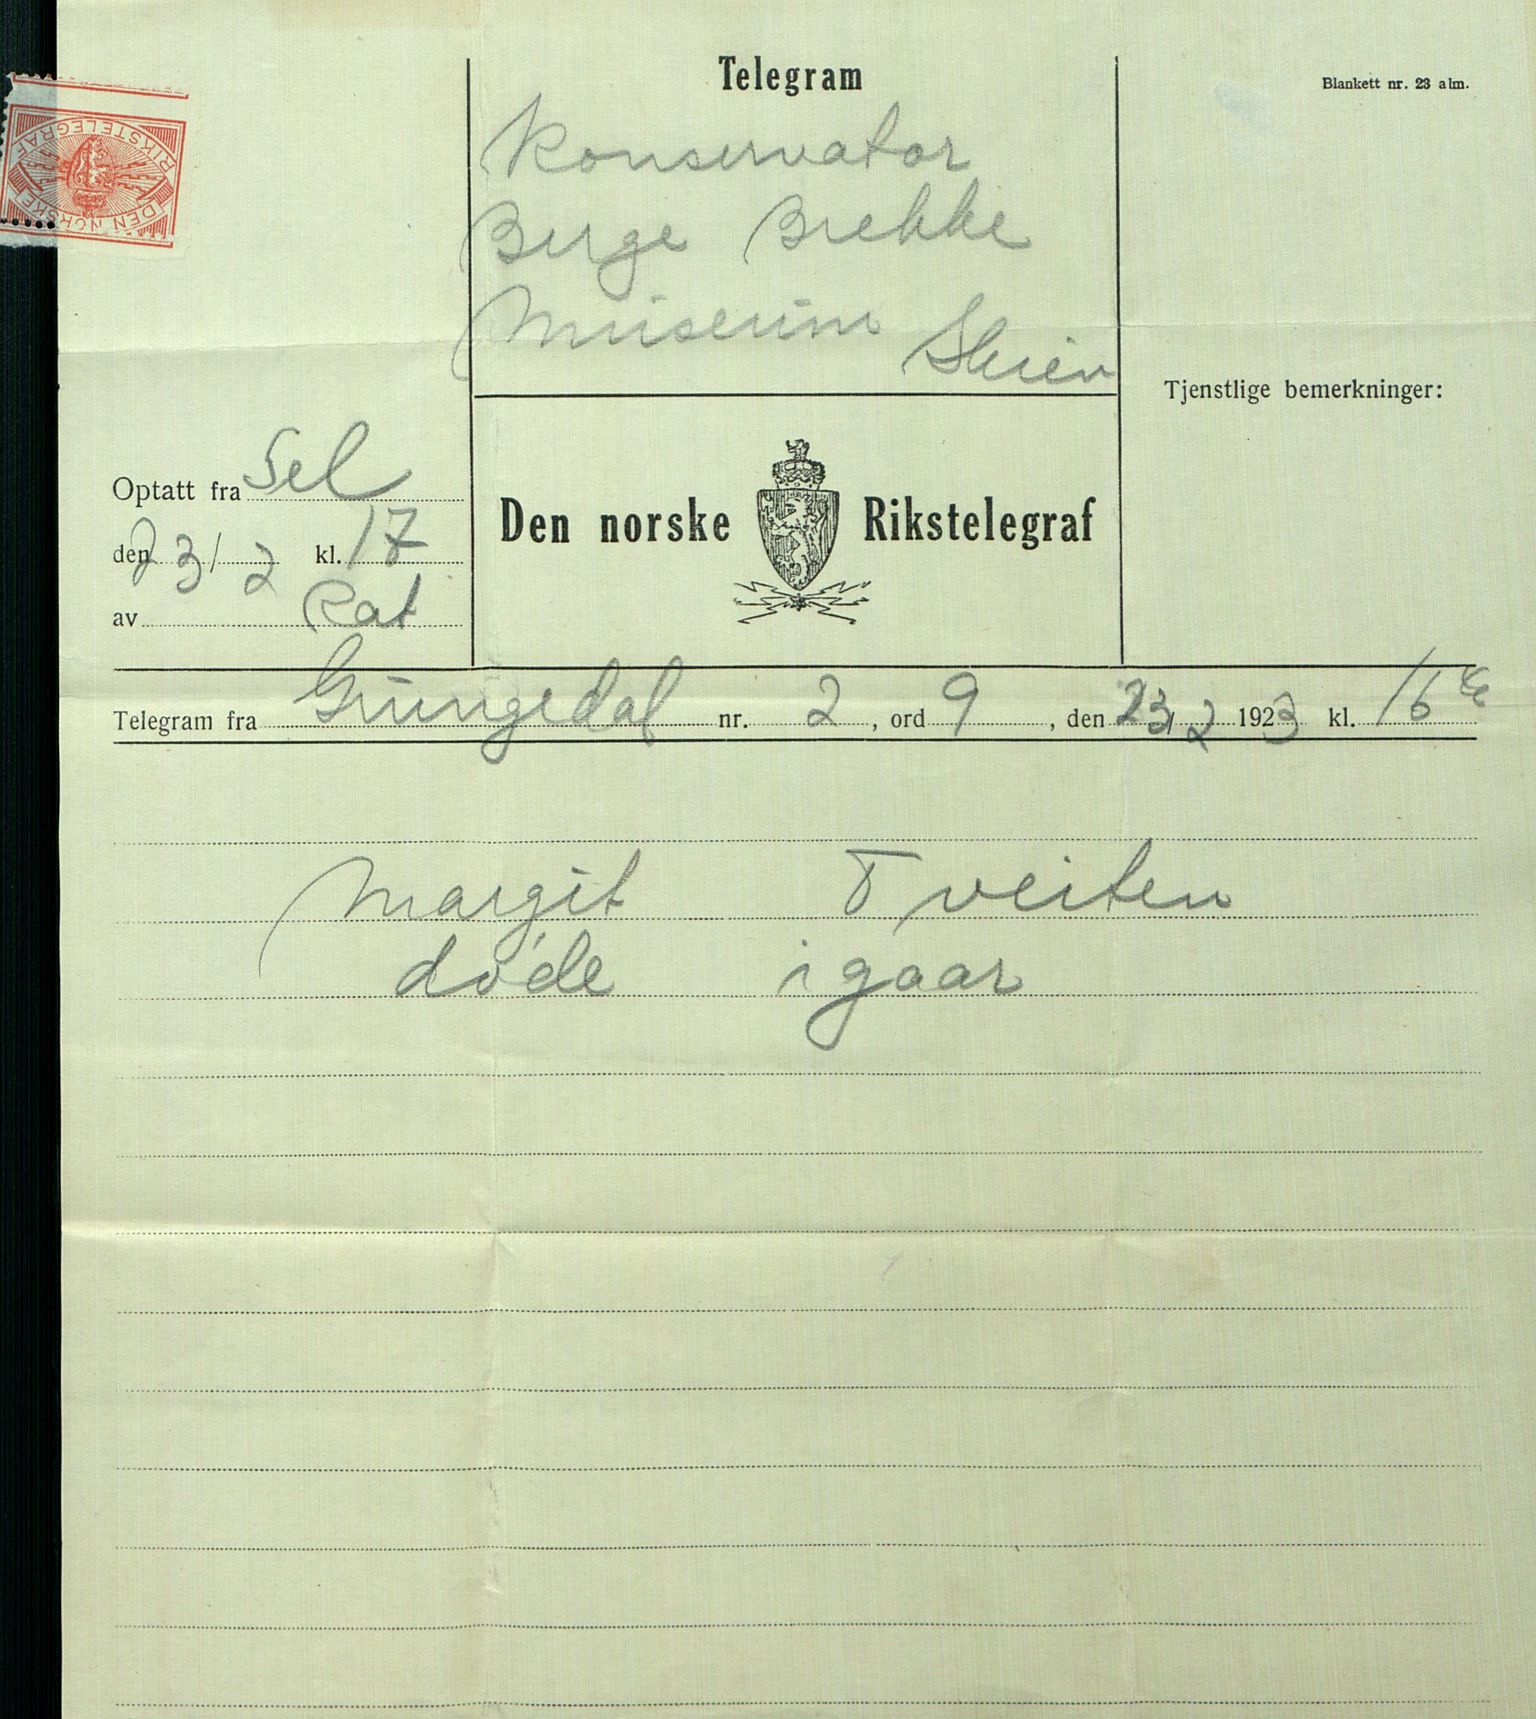 Telegram
Blankett nr. 23 alm.
DEN NORSKE
RIKSTELEGRAF
Konservator
Berge Brekke
Museum Skien
Tjenstlige bemerkninger:
Optatt fra Sel
den 23/2 kl. 17
av Rat
Den norske Rikstelegraf
Telegram fra Grungedal nr. 2, ord 9, den 23/2 1923 kl. 16
Margit Tveiten
døde igaar